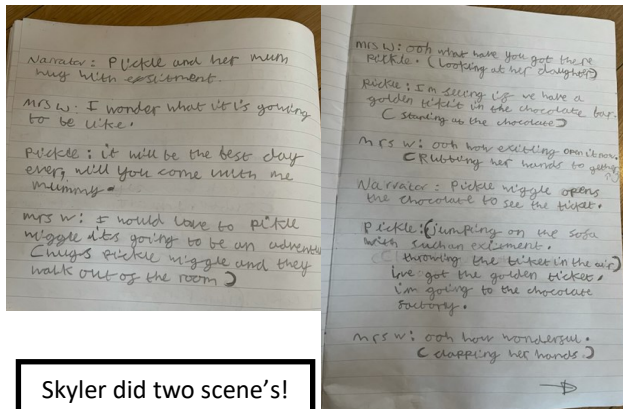 Narrator: Pickle and her mum
hug with exsitment.
Mrs W: I wonder what it is going
to be like.
Pickle: it will be the best day
ever, will you come with me
mummy.
mrs W: I would love to pickle
wiggle its going to be an adventu
(hugs pickle wiggle and they
walk out of the room)
Skyler did two scene's!
mrs W: ooh what have you got there
pickle. (Looking at her daughter)
Pickle: I'm seeing if we have a
golden tikit in the chocolate bar.
( staring at the chocolate)
mrs W: ooh how exitting open it now.
(Rubbing her hands to gether)
Narrator: Pickle wiggle opens
the chocolate to see the ticket.
Pickle: (jumping on the sofa
with such an exicment.
( throwing the tiket in the air)
Ive got the golden ticket.
i'm going to the chocolate
factory.
mrs W: ooh how wonderful.
( clapping her hands.)